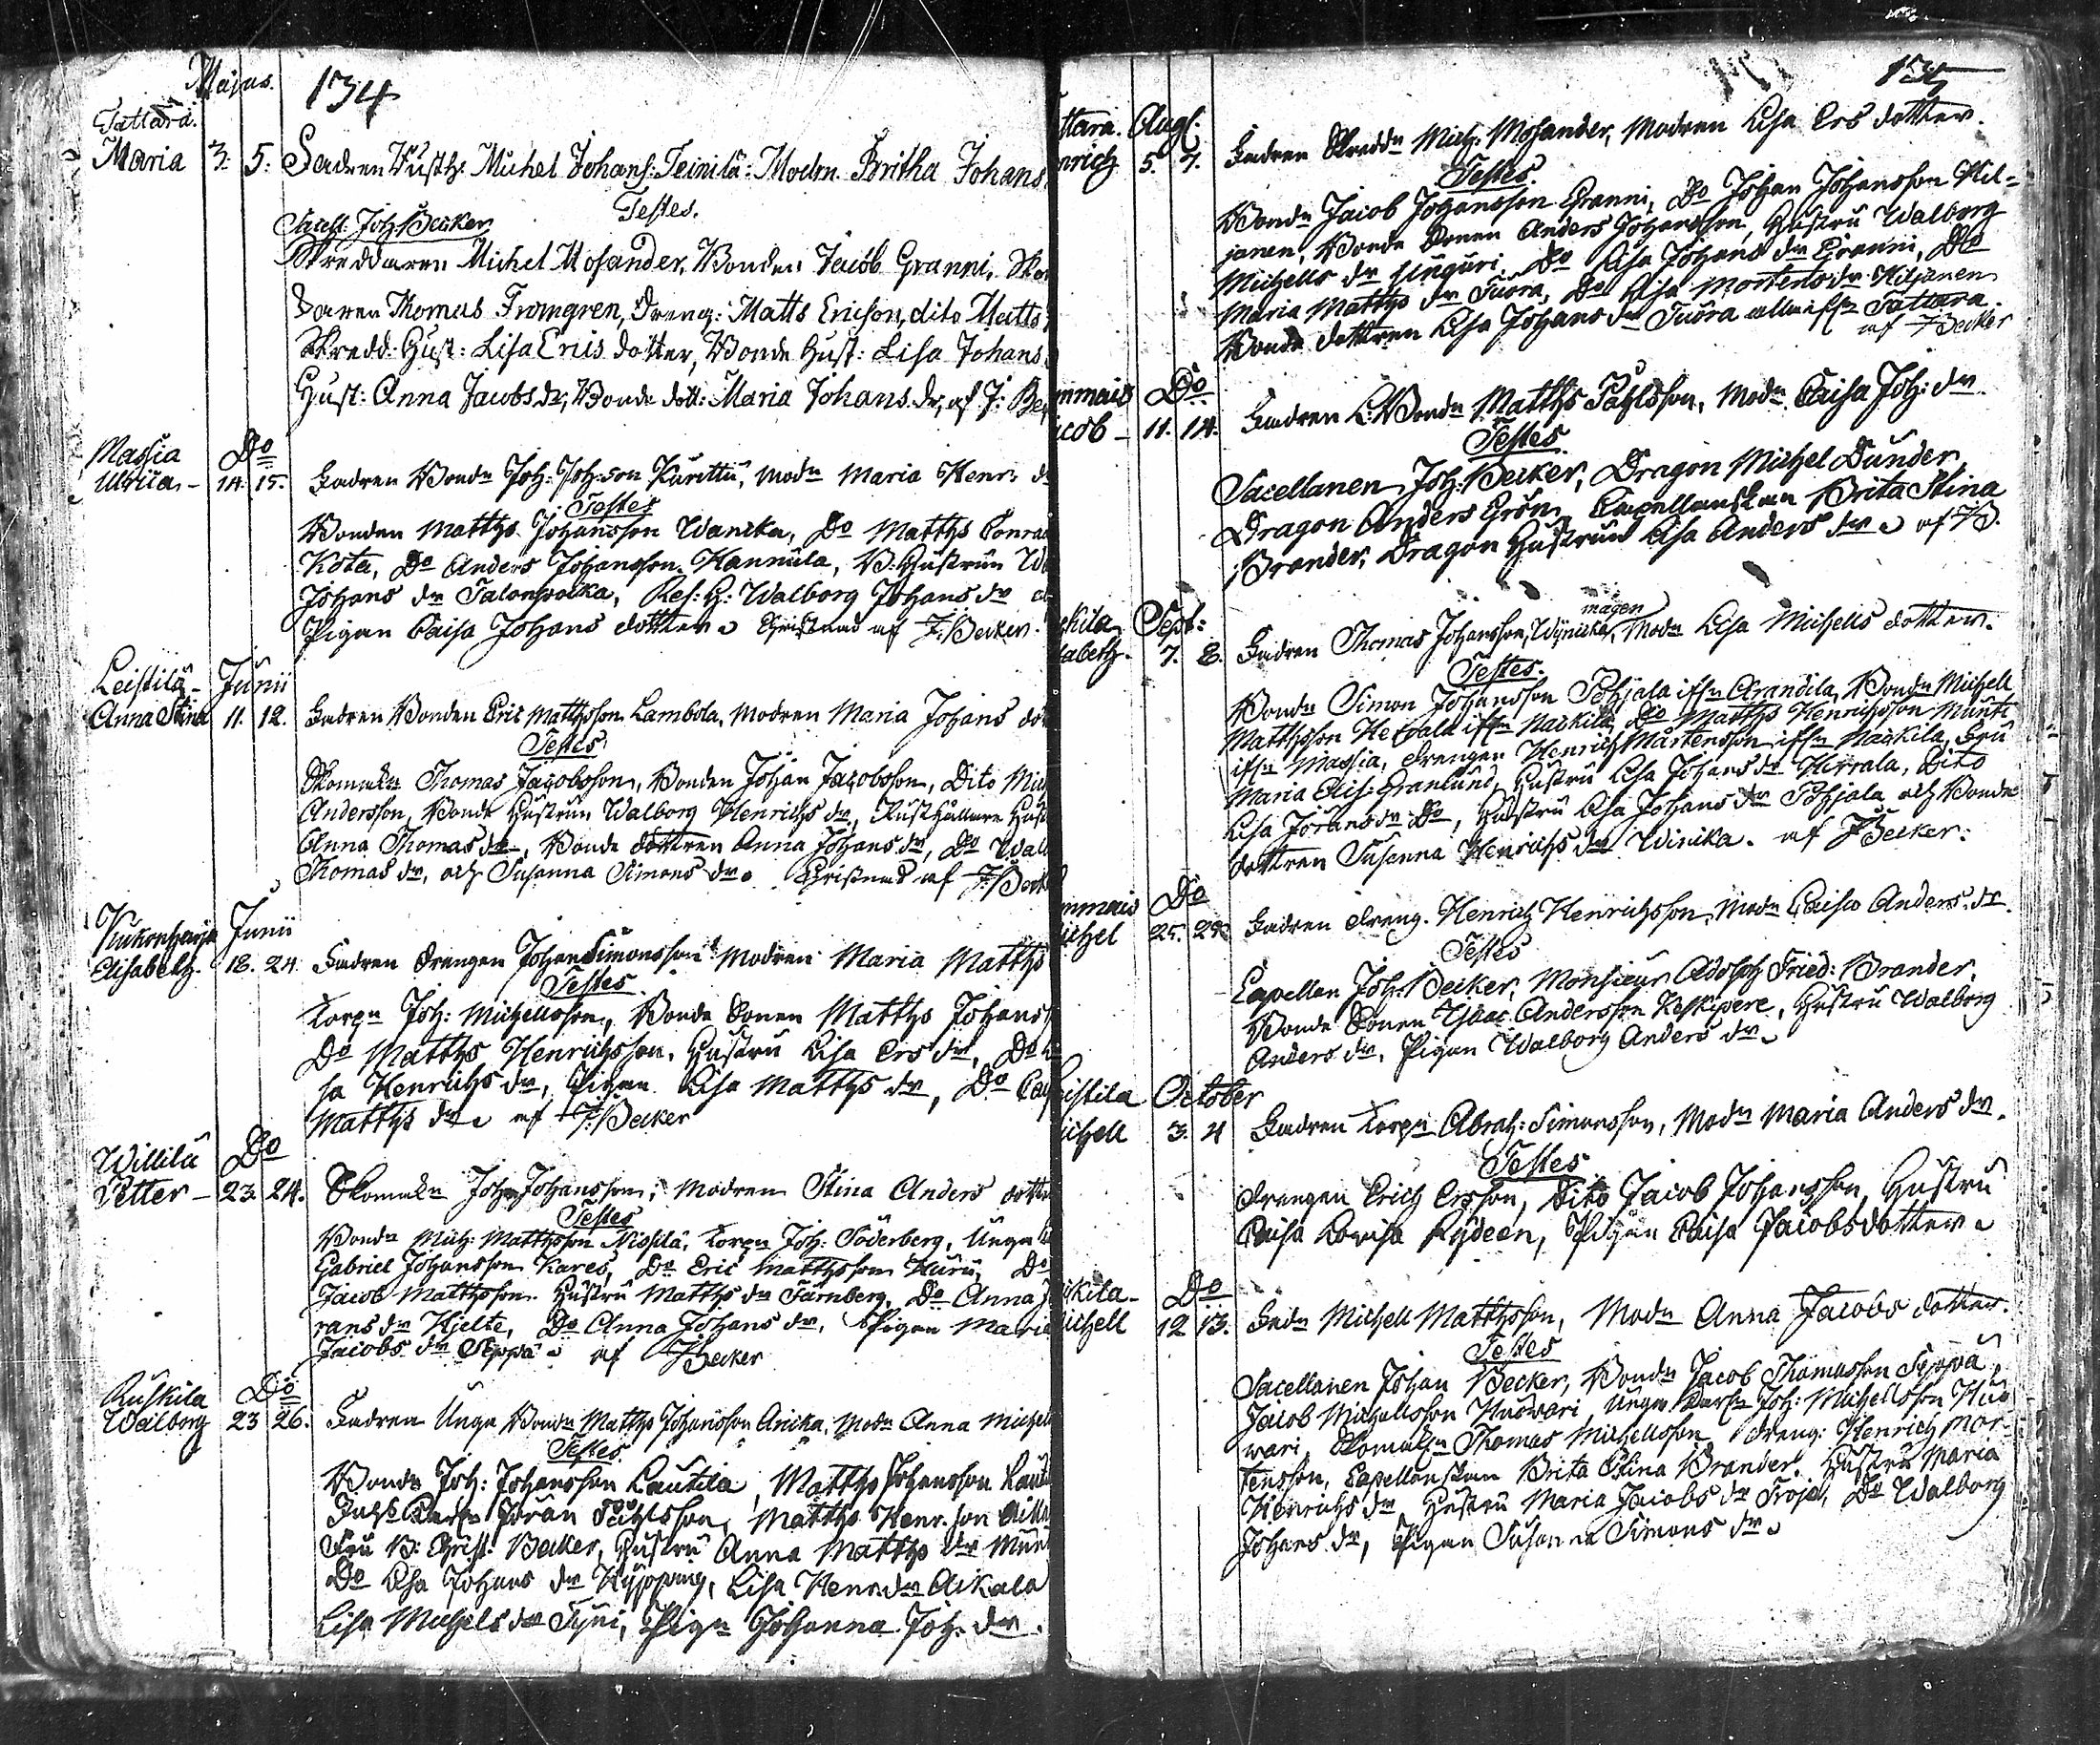 Majus.
134
Tattara.
Maria 3. 5. Fadren Rusth: Michel Johans: Teinilä: Modrn Britha Johans
Testes.
Sacell: Joh: Becker
Skreddaren Michel Mosander, Bonden Jacob Granni, Sko
Thomas Fromgren, Dreng: Matts Ericson, dito Matts
Skredd: Hust: Lisa Erics dotter, Bonde Hust: Lisa Johans
Hust: Anna Jacobs dr, Bonde dott: Maria Johans dr, af J: Be
Massia Do
Ulrica - 14. 15. Fadren Bondn Joh: Joh:son Kurittu, Modn Maria Henr:
Testes
Bonden Matths Johansson Wanika, Do Matths Conra
Kota, Do Anders Johansson Hannula, B. Hustrun
Johans dr Talonpoika, Res: H: Walborg Johans dr
Pigan Caisa Johans dotter Christnad af J: Becker.
Leistilä - Junii
Anna Stina 11. 12. Fadren Bonden Eric Matthsson Lambola, Modren Maria Johans
Testes
Skomakn Thomas Jacobsson, Bonden Johan Jacobsson, Dito Mic
Andersson, Bonde Hustrun Walborg Henrichs dr, Rusthållare Hust
Anna Thomas dr, Bonde dottren Anna Johans dr, Do Walb
Thomas dr, och Susanna Simons dr. Christnad af J: Beck
Kukonharja Junii
Elisabeth. 18. 24. Fadren Drengen Johan Simonsson Modren Maria Matths
Testes.
Torpn Joh: Michellsson, Bonde Sonen Matths Johans
Do Matths Henrichsson, Hustru Lisa Ers dr, Do
sa Henrichs dr, Pigan Lisa Matths dr, Do Cai
Matths dr af J: Becker
Willilä Do
Petter - 23. 24. Skomakn Joh: Johansson, Modren Stina Anders dott
Testes
Bondn Mich: Matthsson Nissilä, Torpn Joh: Söderberg, Unga
Gabriel Johansson Kares, Do Eric Matthsson Huru, Do
Jacob Matthsson. Hustru Matths dr Färnberg, Do Anna J
rans dr Hjelte, Do Anna Johans dr, Pigan Maria
Jacobs dr Seppä af Becker
Ruskila Do
Walborg 23 26. Fadren Unga Bondn Matths Johansson Anika, Modn Anna Michel
Testes
Bonde Joh: Johansson Lautila, Matths Johansson
Jöran Påhlsson, Matths Henr. son
Fru B: Christ: Becker, Hustru Anna Matths dr
Do Lisa Johans dr Kyöping, Lisa Henr: dr Aikala
Lisa Michels dr Tyni, Pign Johanna Joh: dr.
135
ttara. Aug:
nrich 5. 7. Fadren Skreddn Mich: Mosander, Modren Lisa Ers dotter.
Testes.
Bondn Jacob Johansson Granni, Do Johan Johansson Kil-
janen, Bonde Sonen Anders Johansson, Hustru Walborg
Michells dr Unguri, Do Lisa Johans dr Granni, Do
Maria Matths dr Tuora, Do Lisa Mortens dr Kiljanen
Bonde dottren Lisa Johans dr Tuora alla ifrn Tattara.
af J Becker
mmais Do
cob - 11. 14. Fadren Bondn Matths Påhlsson, Modn Caisa Joh: dr.
Testes
Sacellanen Joh: Becker, Dragon Michel Dunder,
Dragon Anders Grön, Capellanskan Brita Stina
Brander, Dragon Hustrun Lisa Anders dr af J B.
kila Sept:
sabeth. 7. 8. Fadren Thomas Johansson, Wynicka, magen Modn Lisa Michells dotter.
Testes.
Bondn Simon Johansson Pohjala ifrn Arandila, Bondn Michell
Matthsson Heikala ifrn Naskila, Do Matths Henrichsson Munti
ifrn Massia, Drengen Henrich Mårtensson ifrn Naskila, Fru
Maria Elis: Granlund, Hustru Lisa Johans dr Hirrala, Dito
Lisa Jörans dr Do, Hustru Lisa Johans dr Pohjala och Bonde
dottren Susanna Henrichs dr Winika. af J Becker:
mmais Do
ichel 25. 29. Fadren Dreng. Henrich Henrichsson, Modn Caisa Anders dr.
Testes
Capellan Joh: Becker, Monsieur Adolph Fried: Brander,
Bonde Sonen Isaac Andersson Keskipere, Hustru Walborg
Anders dr, Pigan Walborg Anders dr.
istila October
ichell 3. 4 Fadren Torpn Abrah: Simonsson, Modn Maria Anders dr.
Testes
Drengen Erich Ersson, Dito Jacob Johansson, Hustru
Caisa Lovisa Rydeen, Pigan Caisa Jacobs dotter
kila - Do
ichell 12 13. Fadn Michell Matthsson, Modn Anna Jacobs dotter.
Testes
Sacellanen Johan Becker, Bondn Jacob Thomasson Seppä,
Jacob Michellsson Huowari, Unga Joh: Michellsson Huo
wari, Skomakn Thomas Michellsson, Dreng: Henrich Mor-
tensson, Capellanskan Brita Stina Brander, Hustru Maria
Henrichs dr, Hustru Maria Jacobs dr Troja, Do Walborg
Johans dr, Pigan Susanna Simons dr